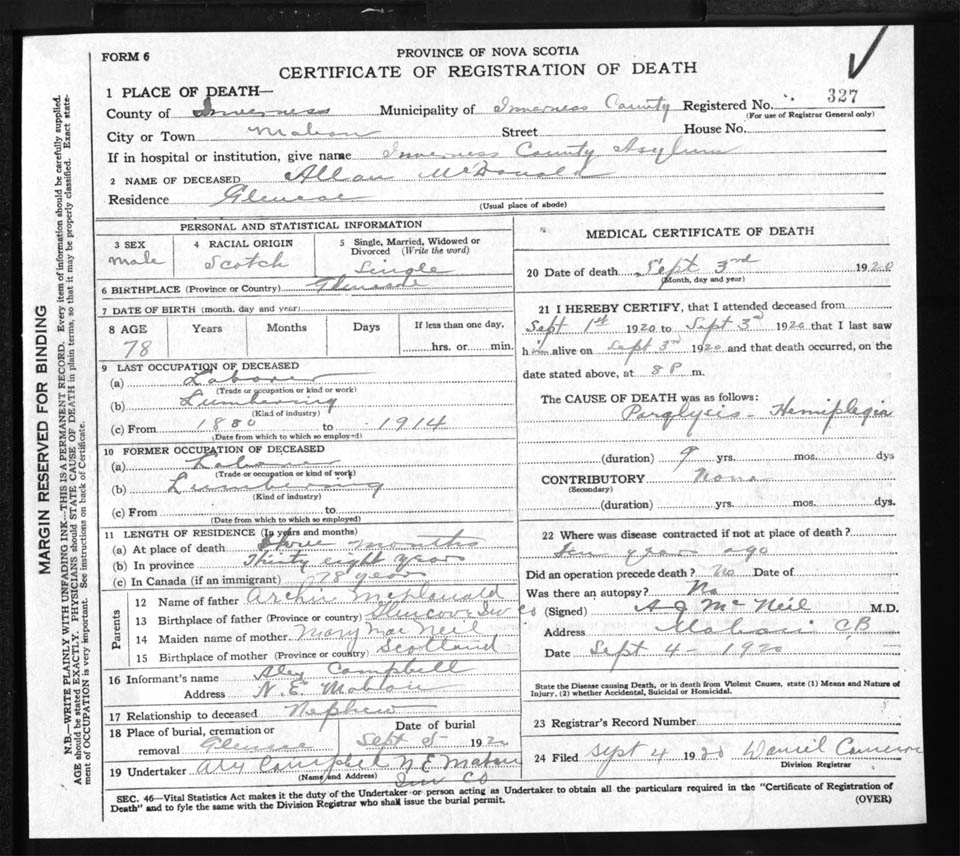 FORM 6
PROVINCE OF NOVA SCOTIA
CERTIFICATE OF REGISTRATION OF DEATH
1 PLACE OF DEATH—
County of Inverness Municipality of Inverness County Registered No. 327
(For use of Registrar General only)
City or Town Mabou Street House No.
If in hospital or institution, give name Inverness County Asylum
2 NAME OF DECEASED Allan McDonald
Residence Glencoe
(Usual place of abode)
PERSONAL AND STATISTICAL INFORMATION
3 SEX
Male
4 RACIAL ORIGIN
Scotch
5 Single, Married, Widowed or
Divorced (Write the word)
Single
6 BIRTHPLACE (Province or Country) Glencoe
7 DATE OF BIRTH (month, day and year)
8 AGE Years Months Days If less than one day,
78 hrs. or min.
9 LAST OCCUPATION OF DECEASED
(a) Laborer
(Trade or occupation or kind or work)
(b) Lumbering
(Kind of industry)
(c) From 1880 to 1914
(Date from which to which so employed)
10 FORMER OCCUPATION OF DECEASED
(a) Laborer
(Trade or occupation or kind of work)
(b) Lumbering
(Kind of industry)
(c) From to
(Date from which to which so employed)
11 LENGTH OF RESIDENCE (In years and months)
(a) At place of death three months
(b) In province Thirty eight years
(c) In Canada (if an immigrant) 78 years
Parents
12 Name of father Archie McDonald
13 Birthplace of father (Province or country) Glencoe Inv Co
14 Maiden name of mother Mary MacNeil
15 Birthplace of mother (Province or country) Scotland
16 Informant's name Alex Campbell
Address N. E. Mabou
17 Relationship to deceased Nephew
18 Place of burial, cremation or
removal Glencoe
Date of burial
Sept 5 1920
19 Undertaker Alex Campbell N E Mabou
(Name and Address) Inv Co
MEDICAL CERTIFICATE OF DEATH
20 Date of death Sept 3rd 1920
(Month, day and year)
21 I HEREBY CERTIFY, that I attended deceased from
Sept 1st 1920 to Sept 3rd 1920 that I last saw
him alive on Sept 3rd 1920 and that death occurred, on the
date stated above, at 8 P m.
The CAUSE OF DEATH was as follows:
Paralycis - Hemiplegia
(duration) 9 yrs. mos. dys
CONTRIBUTORY None
(Secondary)
(duration) yrs. mos. dys.
22 Where was disease contracted if not at place of death?
Ten years ago
Did an operation precede death? No Date of
Was there an autopsy? No
(Signed) A J McNeil M.D.
Address Mabou CB
Date Sept 4 - 1920
State the Disease causing Death, or in death from Violent Causes, state (1) Means and Nature of
Injury, (2) whether Accidental, Suicidal or Homicidal.
23 Registrar's Record Number
24 Filed Sept 4 1920 Daniel Cameron
Division Registrar
SEC. 46—Vital Statistics Act makes it the duty of the Undertaker or person acting as Undertaker to obtain all the particulars required in the "Certificate of Registration of
Death" and to fyle the same with the Division Registrar who shall issue the burial permit. (OVER)
MARGIN RESERVED FOR BINDING
N.B.—WRITE PLAINLY WITH UNFADING INK—THIS IS A PERMANENT RECORD. Every item of information should be carefully supplied.
AGE should be stated EXACTLY. PHYSICIANS should STATE CAUSE OF DEATH in plain terms, so that it may be properly classified. Exact state-
ment of OCCUPATION is very important. See instructions on back of Certificate.